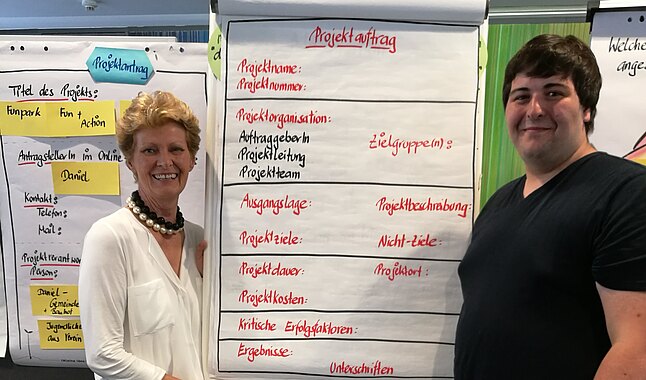 Projektantrag
Titel des Projekts:
Funpark
Fun +
Action
AntragstellerIn im Online
Daniel
Kontakt:
Telefon:
Mail:
Projektverantwor
Person:
Daniel -
Gemeinde
+ Bauhof
Jugendliche
aus
Projektauftrag
Projektname:
Projektnummer:
Projektorganisation:
AuftraggeberIn
Zielgruppe(n):
Projektleitung
Projektteam
Ausgangslage:
Projektbeschreibung:
Projektziele:
Nicht-Ziele:
Projektdauer:
Projektort:
Projektkosten:
Kritische Erfolgsfaktoren:
Ergebnisse:
Unterschriften
Welche
anges